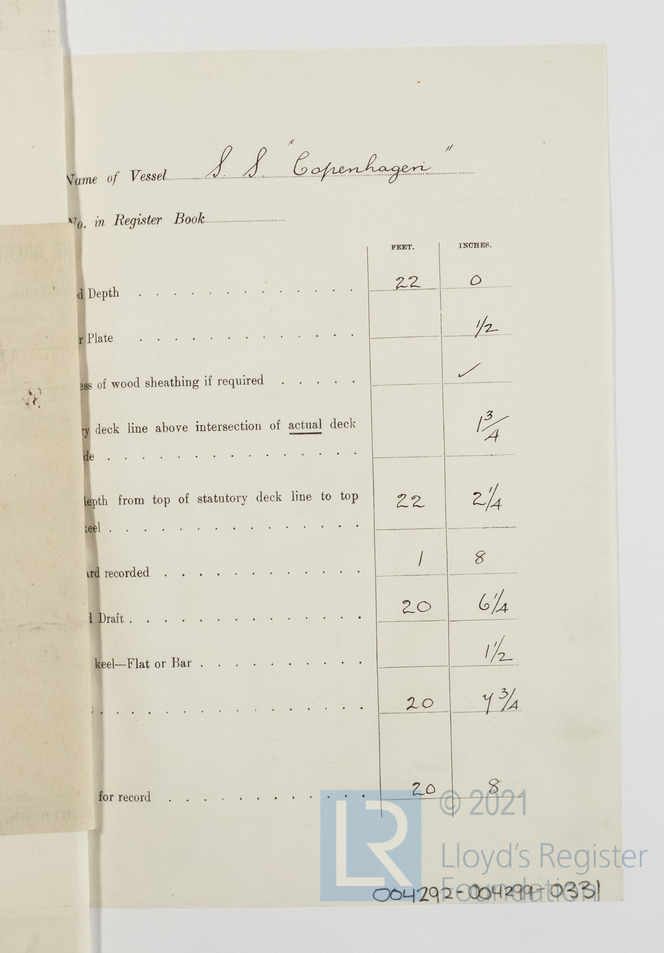 Name of Vessel S. S. "Copenhagen"
No. in Register Book
FEET. INCHES.
d Depth 22 0
r Plate 1/2
ess of wood sheathing if required ✓
ry deck line above intersection of actual deck
de 1 3/4
depth from top of statutory deck line to top
keel 22 2 1/4
ard recorded 1 8
d Draft 20 6 1/4
keel—Flat or Bar 1 1/2
20 7 3/4
for record 20 8
© 2021
LR
Lloyd's Register
Foundation
004292-004299-0331